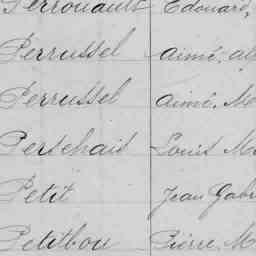 Perrouault Edouard,
Perrussel Aimé, al
Perrussel Aimé, M
Perschais Louis M
Petit Jean Gabr
Petitbon Pierre M